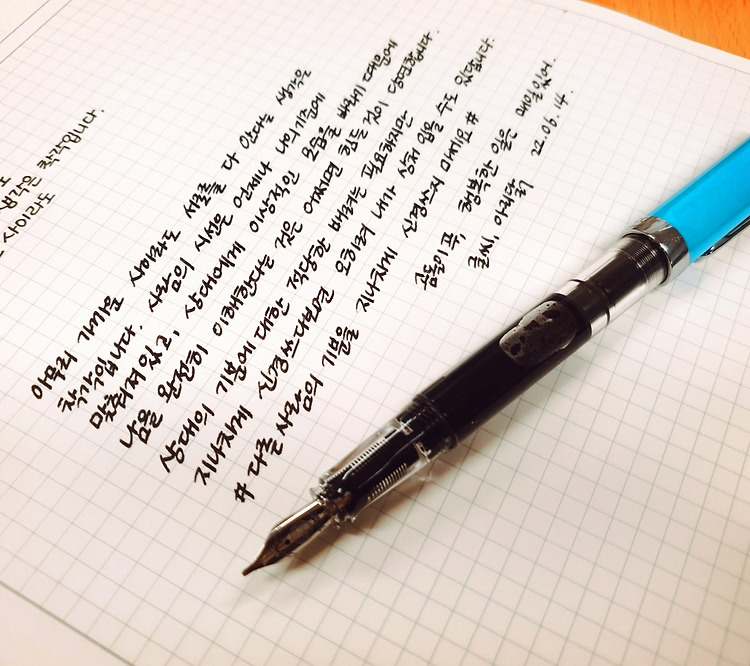 착각입니다.
아무리 가까운 사이라도 서로를 다 안다는 생각은
착각입니다. 사람의 시선은 언제나 나의 기준에
맞춰져 있고, 상대에게 이상적인 모습을 바라기 때문에
남을 완전히 이해한다는 것은 어쩌면 힘든 것이 당연합니다.
상대의 기분에 대한 적당한 배려는 필요하지만
지나치게 신경쓰다보면 오히려 내가 상처 입을 수도 있습니다.
# 다른 사람의 기분을 지나치게 신경쓰지 마세요 #
김이율 북, 행복한 일은 매일 있어.
글씨, 아라
22.06.14.